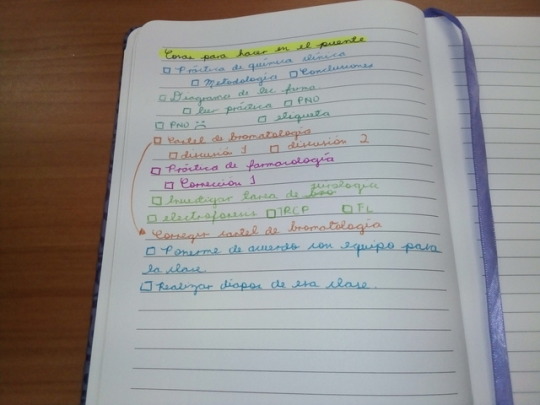 Cosas para hacer en el puente
Práctica de química clínica
Metodología Conclusiones
Diagrama de tec farma
leer práctica PNO
PNO :( etiqueta
Cartel de bromatología
discusión 1 discusión 2
Práctica de farmacología
Corrección 1
Investigar tarea de virología
electroforesis IRCP FL
Corregir cartel de bromatología
Ponerme de acuerdo con equipo para
la clase.
Realizar diapos de esa clase.